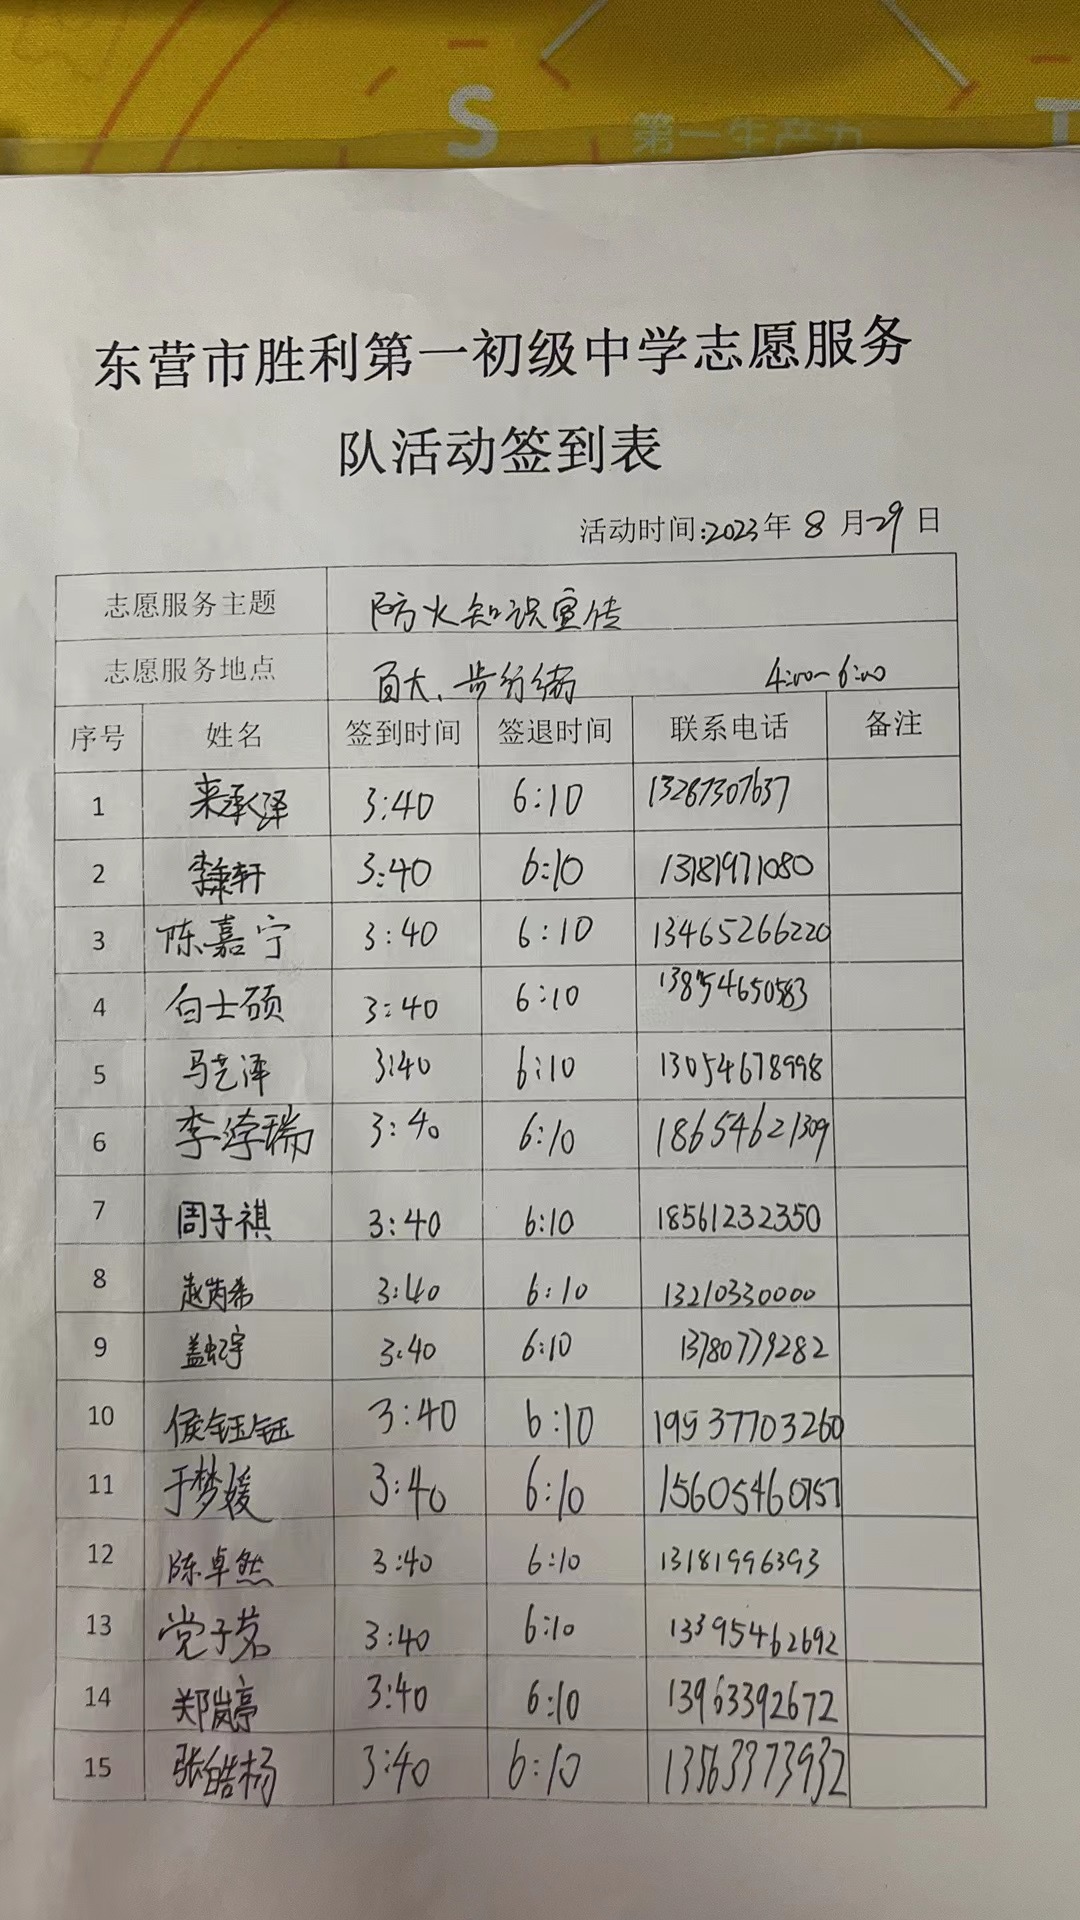 S 第一生产力 T
东营市胜利第一初级中学志愿服务
队活动签到表
活动时间:2023年 8 月29日
志愿服务主题 防火知识宣传
志愿服务地点 百大、步行街 4:00-6:00
序号 姓名 签到时间 签退时间 联系电话 备注
1 来承泽 3:40 6:10 13287307637
2 李秉轩 3:40 6:10 13181971080
3 陈嘉宁 3:40 6:10 13465266220
4 白士硕 3:40 6:10 13854650583
5 马艺泽 3:40 6:10 13054678998
6 李淳瑞 3:40 6:10 18654621309
7 周子祺 3:40 6:10 18561232350
8 赵芮希 3:40 6:10 13210330000
9 盖虹宇 3:40 6:10 13780779282
10 侯钰钰 3:40 6:10 19537703260
11 于梦媛 3:40 6:10 15605460757
12 陈卓然 3:40 6:10 13181996393
13 党子茗 3:40 6:10 13395462692
14 郑岚亭 3:40 6:10 13963392672
15 张皓杨 3:40 6:10 13563373932